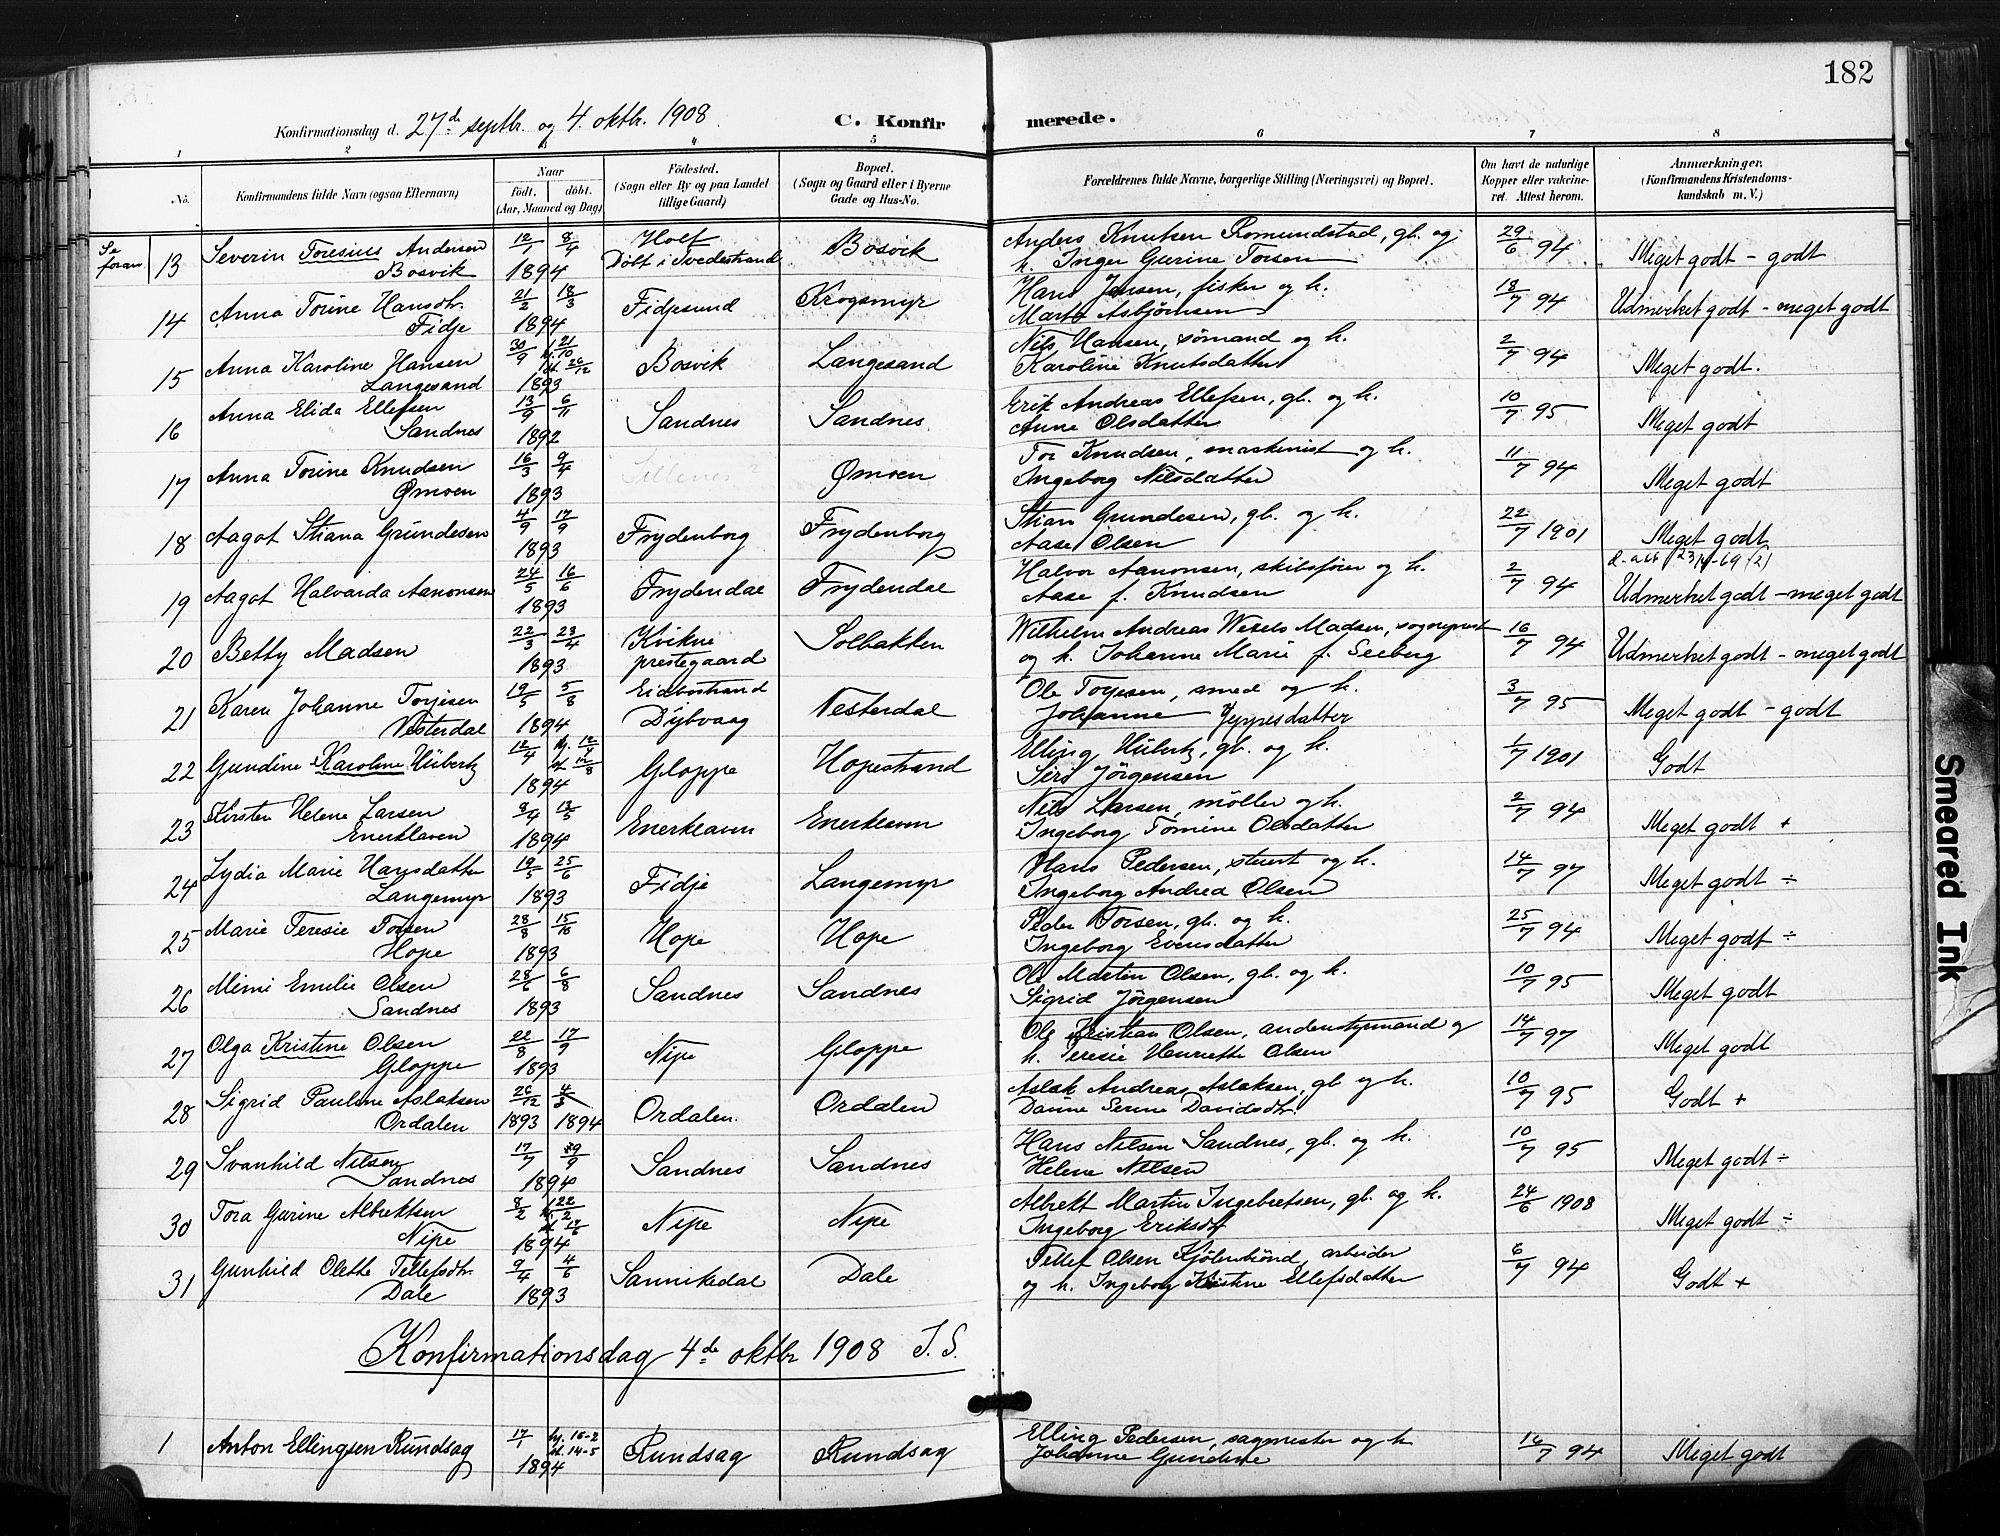 182
Konfirmationsdag d. 27de septbr. og 4. oktbr. 1908.
C. Konfir merede.
1 2 3 4 5 6 7 8
No. Konfirmandens fulde Navn (ogsaa Efternavn) Naar født, døbt. (Aar, Maaned og Dag) Fødested. (Sogn eller By og paa Landet tillige Gaard) Bopæl. (Sogn og Gaard eller i Byerne Gade og Hus-No. Forældrenes fulde Navne, borgerlige Stilling (Næringsvei) og Bopæl. Om havt de naturlige Kopper eller vakcineret. Attest herom. Anmærkninger. (Konfirmandens Kristendomskundskab m. V.)
Se foran
13 Severin Toresius Andersen Bosvik 12/1 8/4 1894 Holt Dølt i Tvedestrand Bosvik Anders Knutsen Romundstad, gb. og h. Inger Gurine Torsen 29/6 94 Meget godt - godt
14 Anna Torine Hansdtr. Fidje 21/2 18/3 1894 Fidjesund Krogsmyr Hans Jensen, fisker og h. Marte Asbjörnsen 18/7 94 Udmerket godt - meget godt
15 Anna Karoline Hansen Langesand 30/9 hj. 21/10 st. 26/12 1893 Bosvik Langesand Nils Hansen, sömand og h. Karoline Knutsdatter 2/7 94 Meget godt.
16 Anna Elida Ellefsen Sandnes 13/9 6/11 1892 Sandnes Sandnes Erik Andreas Ellefsen, gb. og h. Anne Olsdatter 10/7 95 Meget godt
17 Anna Torine Knudsen Ømoen 16/3 9/4 1893 Ømoen Tor Knudsen, maskinist og h. Ingeborg Nilsdatter 11/7 94 Meget godt
18 Aagot Stiana Grundesen 4/9 17/9 1893 Frydenborg Frydenborg Stian Grundesen, gb. og h. Aase Olsen 22/7 1901 Meget godt
19 Aagot Halvarda Aanonsen 24/5 16/6 1893 Frydendal Frydendal Halvor Aanonsen, skibsfører og h. Aase f. Knudsen 2/7 94 Udmerket godt - meget godt
20 Betty Madsen 22/3 23/4 1893 Kvikne prestegaard Solbakken Wilhelm Andreas Wexels Madsen, sogneprest og h. Johanne Marie f. Seeberg 16/7 94 Udmerket godt - meget godt
21 Karen Johanne Torjesen Vesterdal 19/5 5/8 1894 Eidbostrand Dybvaag Vesterdal Ole Torjesen, smed og h. Johanne Jeppesdatter 3/7 95 Meget godt - godt
22 Gundine Karoline Hübertz 12/4 1894 Gloppe Hopestrand Elling Hübertz, gb. og h. Siri Jörgensen 1/7 1901 Godt
23 Kirsten Helene Larsen Enerklaven 8/4 13/5 1894 Enerklaven Enerklaven Nils Larsen, møller og h. Ingeborg Tomine Olsdatter 2/7 94 Meget godt +
24 Lydia Marie Hansdatter Langemyr 19/5 25/6 1893 Fidje Langemyr Hans Pedersen, stuert og h. Ingeborg Andrea Olsen 14/7 97 Meget godt ÷
25 Marie Teresie Torsen Hope 28/8 15/10 1893 Hope Hope Peder Torsen, gb. og h. Ingeborg Evensdatter 25/7 94 Meget godt ÷
26 Mimi Emilie Olsen Sandnes 28/6 6/8 1893 Sandnes Sandnes Ole Martin Olsen, gb. og h. Sigrid Jörgensen 10/7 95 Meget godt
27 Olga Kristine Olsen Gloppe 22/8 17/9 1893 Nipe Gloppe Ole Kristian Olsen, andenstyrmand og h. Teresie Henriette Olsen 14/7 97 Meget godt
28 Sigrid Pauline Aslaksen Ordalen 26/12 1893 1894 Ordalen. Ordalen Aslak Andreas Aslaksen, gb og h. 10/7 95 Godt +
29 Svanhild Nilsen Sandnes 17/7 1894 Sandnes Sandnes Hans Nilsen Sandnes, gb. og h. Helene Nilsen 10/7 95 Meget godt ÷
30 Tora Gurine Albrektsen Nipe 8/2 1894 Nipe Nipe Albrekt Martin Ingebretsen, gb. og h. Ingeborg Eriksdt 24/6 1908 Meget godt ÷
31 Gunhild Olette Tellefsdtr. Dale 9/4 4/6 1893 Sannikedal Dale Tellef Olsen, arbeider og h. Ingeborg Kristine Ellefsdatter 6/7 94 Godt +
Konfirmationsdag 4de oktbr 1908 T. S.
1 Anton Ellingsen Rundsag 17/1 hj. 16-2 st. 14-5 1894 Rundsag Rundsag Elling Pedersen, sagmester og h Johanne Gundine 16/7 94 Meget godt
Smeared Ink